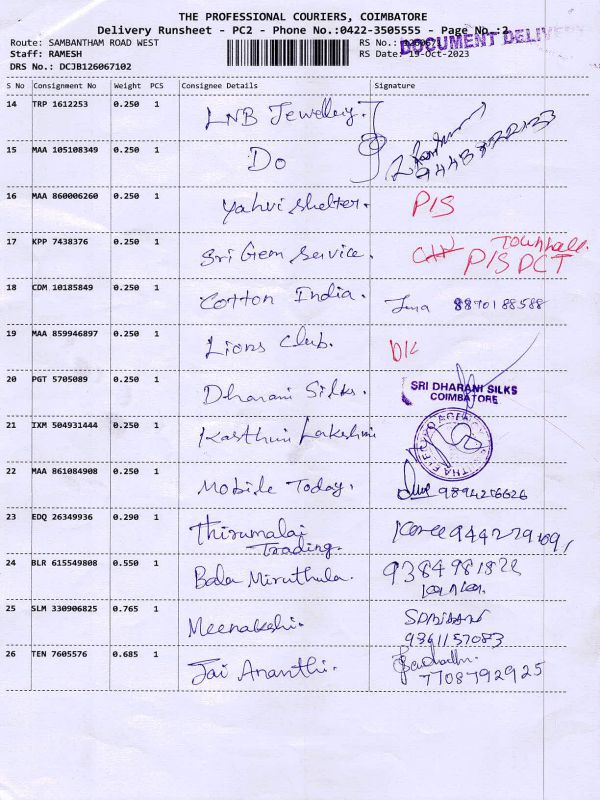 THE PROFESSIONAL COURIERS, COIMBATORE
Delivery Runsheet - PC2 - Phone No.:0422-3505555 - Page No.:2
DOCUMENT DELIVERY
Route: SAMBANTHAM ROAD WEST RS No.:
Staff: RAMESH RS Date: 19-Oct-2023
DRS No.: DCJB126067102
S No Consignment No Weight PCS Consignee Details Signature
14 TRP 1612253 0.250 1 LNB Jewellery.
15 MAA 105108349 0.250 1 Do
16 MAA 860006260 0.250 1 Yahvi Shelter. P/S
17 KPP 7438376 0.250 1 Sri Gem Service. Townhall.
P/S DCT
18 CDM 10185849 0.250 1 Cotton India. 8870188588
19 MAA 859946897 0.250 1 Lions Club. D/L
20 PGT 5705089 0.250 1 Dharani Silks. SRI DHARANI SILKS
COIMBATORE
21 IXM 504931444 0.250 1 Kasthuri Lakshmi
22 MAA 861084908 0.250 1 Mobile Today. 9894266626
23 EDQ 26349936 0.290 1 Thirumalai
Trading.
24 BLR 615549808 0.550 1 Bala Miruthula.
25 SLM 330906825 0.765 1 Meenakshi.
9861157083
26 TEN 7605576 0.685 1 Jai Ananthi.
7708792925